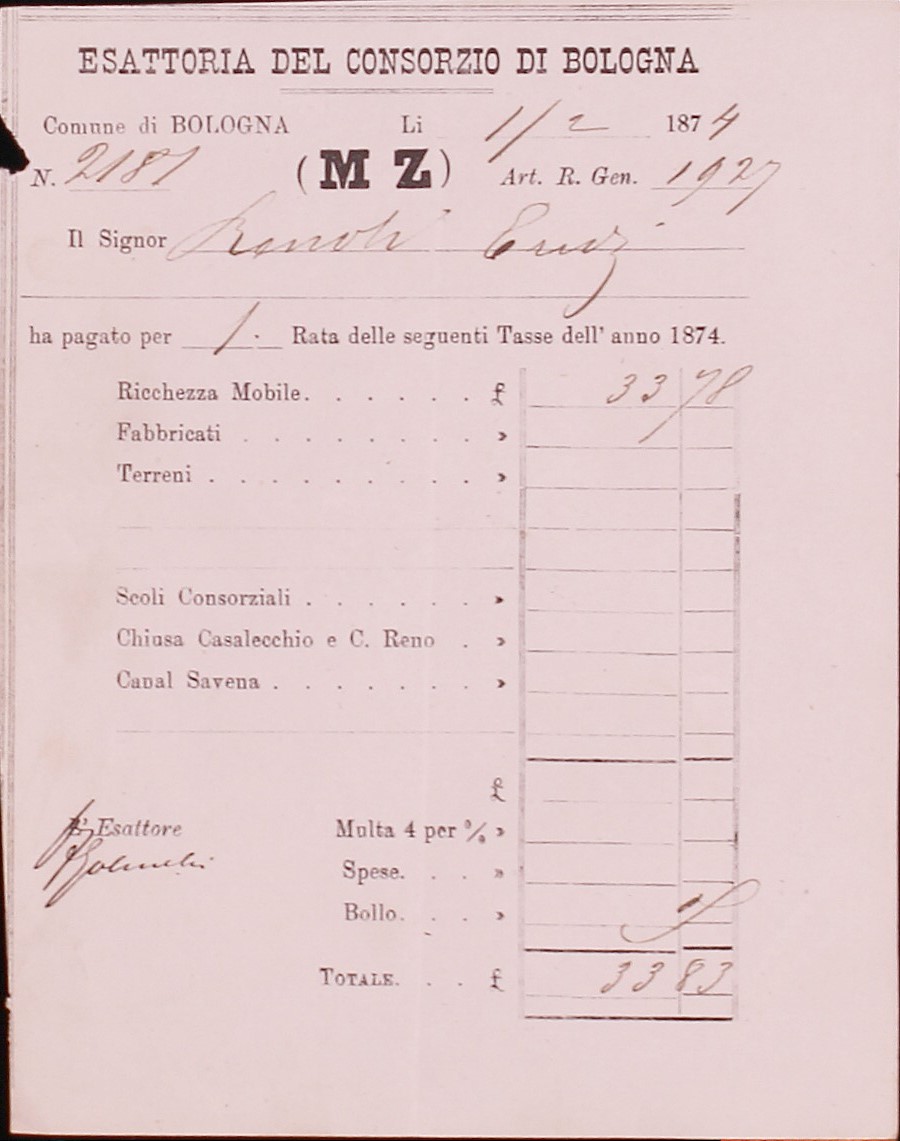 ESATTORIA DEL CONSORZIO DI BOLOGNA
Comune di BOLOGNA Li 1/2 1874
N. 2181 (M Z) Art. R. Gen. 1927
Il Signor
ha pagato per 1. Rata delle seguenti Tasse dell' anno 1874.
Ricchezza Mobile. . . . . . . £ 33 78
Fabbricati . . . . . . . . . »
Terreni . . . . . . . . . . »
Scoli Consorziali . . . . . . »
Chiusa Casalecchio e C. Reno . »
Canal Savena . . . . . . . »
£
L' Esattore Multa 4 per % »
Spese. . . »
Bollo. . . » 5
TOTALE. . . £ 33 83